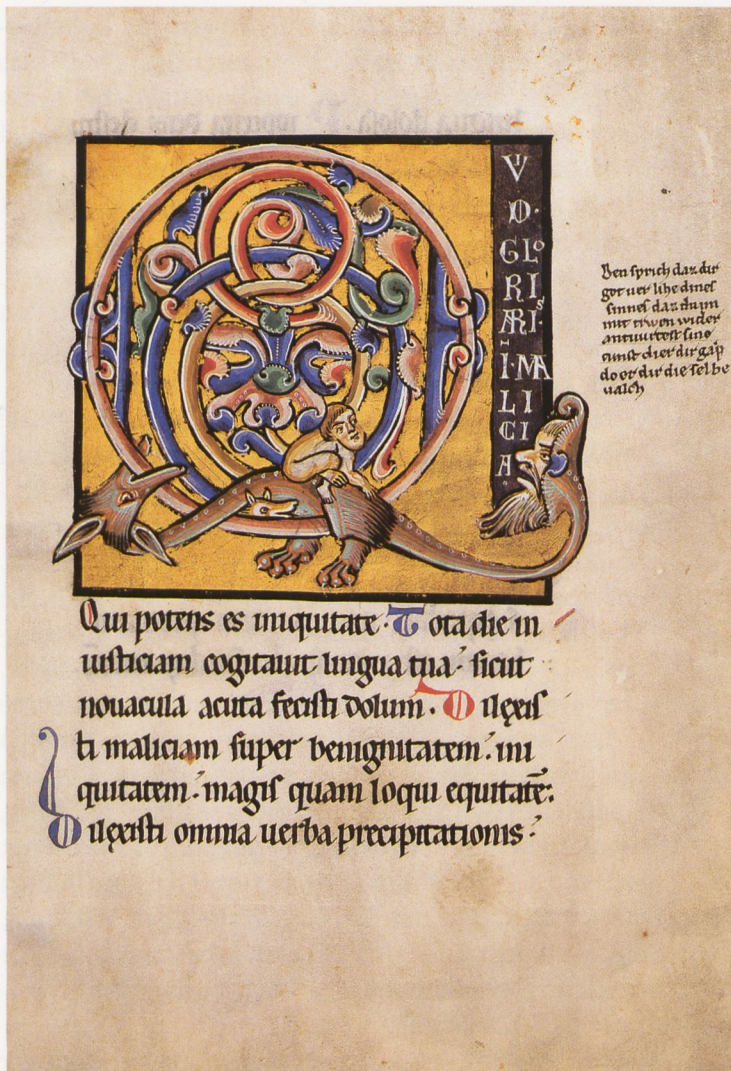 Q
V
D·
GLO
RI
ARIS·
I·MA
LI
CI
A
Den sprich daz dir
got uer lihe dines
sinnes daz du im
mit trwon wider
antuurtest sino
cunst die er dir gap
do er dir die selbe
ualch
Qui potens es iniquitate· Tota die in
iusticiam cogitauit lingua tua· sicut
nouacula acuta fecisti dolum· Dilęxis
ti maliciam super benignitatem· ini
quitatem· magis quam loqui equitatē:
Dilęxisti omnia uerba precipitationis·